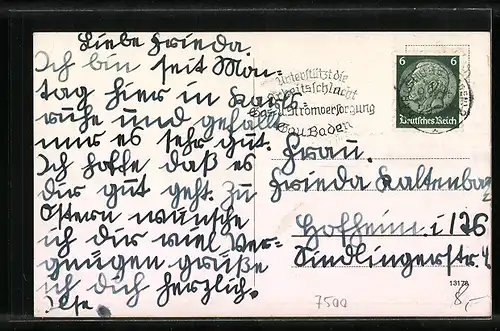 Liebe Frieda.
Ich bin seit Mon-
tag hier in Karls-
ruhe und gefällt
mir es sehr gut.
Ich hoffe daß es
dir gut geht. Zu
Ostern wünsche
ich dir viel Ver-
gnügen grüße
ich dich herzlich.
Ilse
Unterstützt die
Arbeitsschlacht
Stromversorgung
Gau Baden
6 6
Deutsches Reich
Frau.
Frieda Kaltenbaz
Hofheim i/Ts
Sindlingerstr 4
13178
7500
8,-